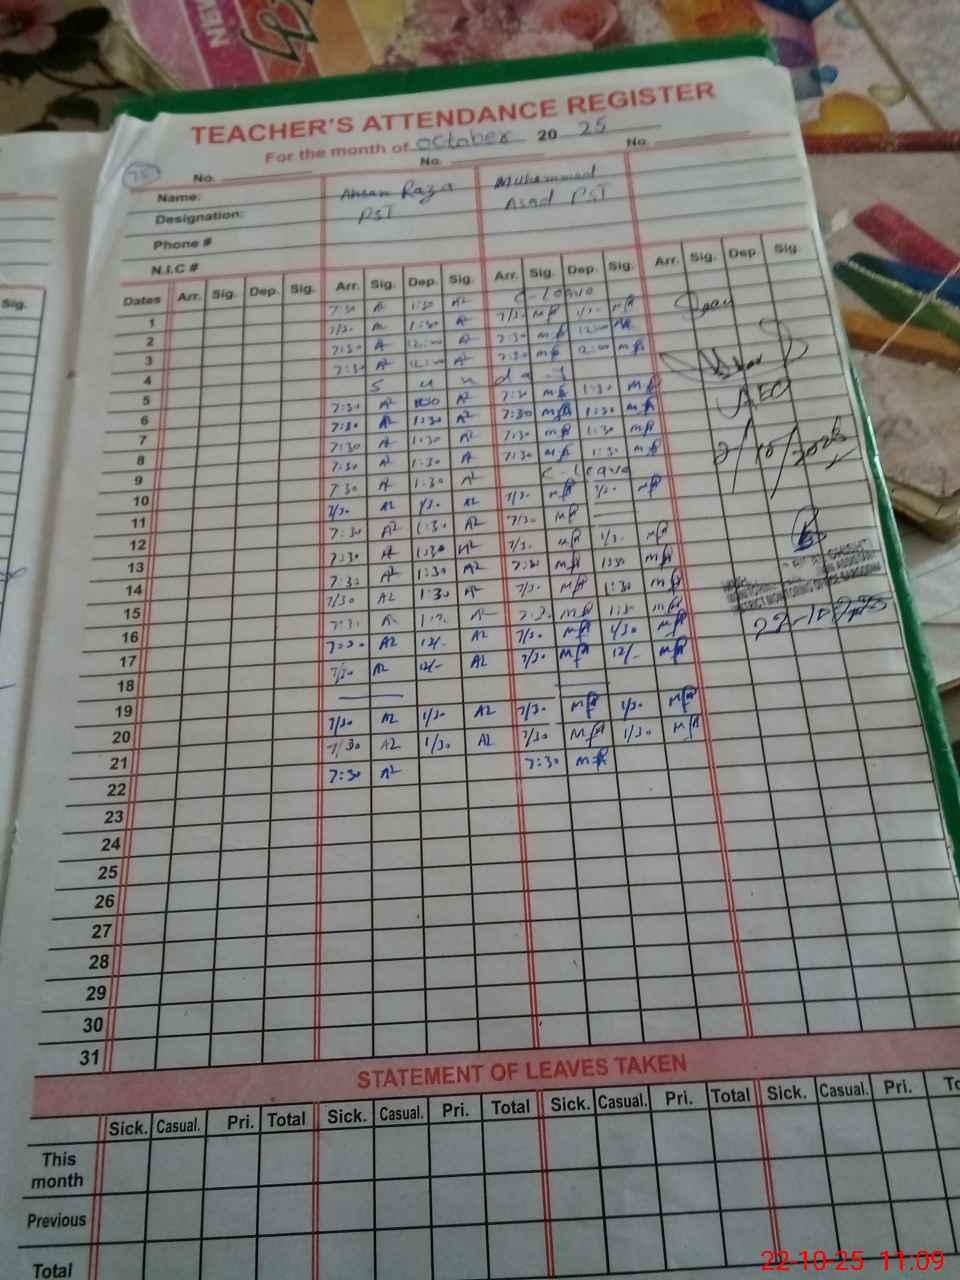 NEW
TEACHER'S ATTENDANCE REGISTER
For the month of October 20 25
No. No. No.
Name: Ahsan Raza Muhammad
Designation: PST Asad PST
Phone #
N.I.C #
Sig.
Dates Arr. Sig. Dep. Sig. Arr. Sig. Dep. Sig. Arr. Sig. Dep. Sig. Arr. Sig. Dep. Sig.
1 7:30 1:30 C-Leave
2 7/30 1:30 7/30 1/30
3 7:30 12:00 7:30 12:00
4 7:30 12:00 7:30 12:00
5 S u n d a y
6 7:30 1:30 7:30 1:30
7 7:30 1:30 7:30 1:30
8 7:30 1:30 7:30 1:30
9 7:30 1:30 7:30 1:30
10 7:30 1:30 C-Leave
11 7/30 A2 1/30 A2 7/30 1/30
12 7:30 A2 1:30 A2 7/30
13 7:30 1:30 7/30 1/30
14 7:30 A2 1:30 A2 7:30 1:30
15 7/30 A2 1:30 A2 7/30 1:30
16 7:30 7:30
17 7:30 A2 12/- A2 7/30 1/30
18 7/30 A2 12/- A2 7/30 12/-
19
20 7/30 A2 1/30 A2 7/30 1/30
21 7/30 A2 1/30 A2 7/30 1/30
22 7:30 A2 7:30
23
24
25
26
27
28
29
30
31
AEO
2/10/2025
MONITORING
DISTRICT MONITORING OFFICE SARGODHA
22-10-2025
STATEMENT OF LEAVES TAKEN
Sick. Casual. Pri. Total Sick. Casual. Pri. Total Sick. Casual. Pri. Total Sick. Casual. Pri.
This month
Previous
Total
22-10-25 11:09